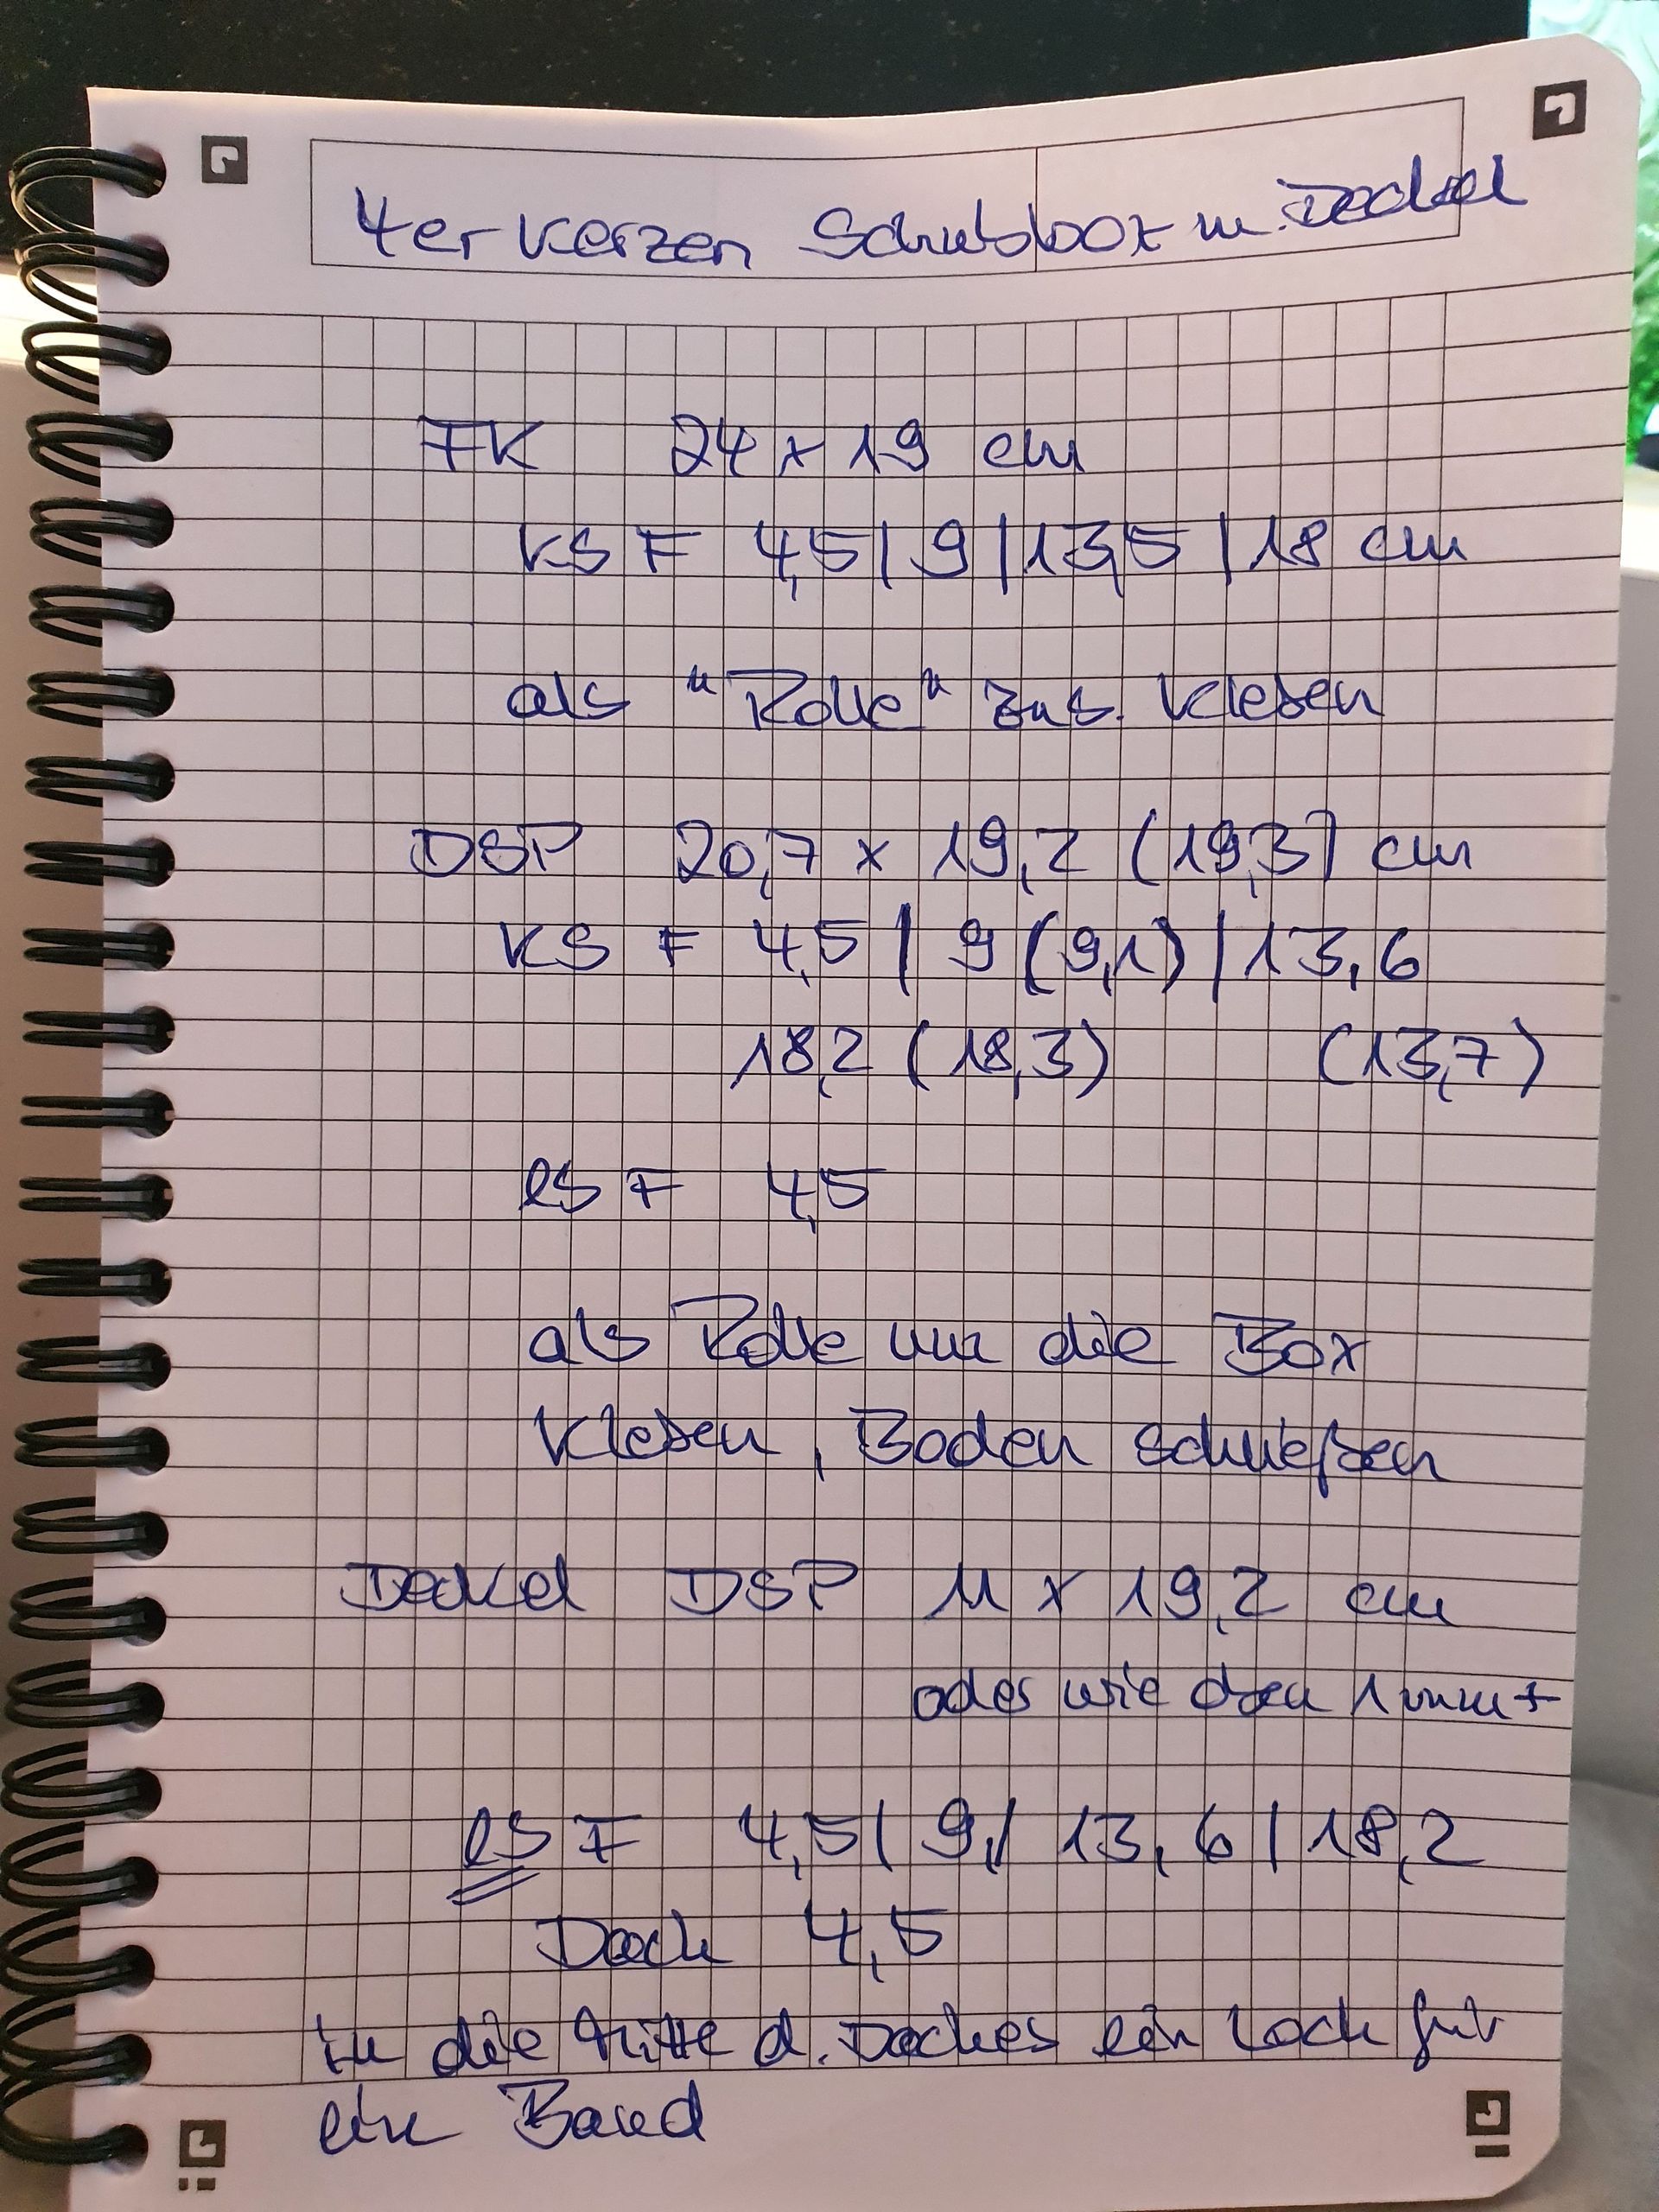 4er Kerzen Schubbox m. Deckel
FK 24 x 19 cm
KS F 4,5 | 9 | 13,5 | 18 cm
als "Rolle" zus. kleben
DSP 20,7 x 19,2 (19,3) cm
KS F 4,5 | 9 (9,1) | 13,6
18,2 (18,3) (13,7)
lS F 4,5
als Rolle um die Box
kleben, Boden schließen
Deckel DSP 11 x 19,2 cm
oder wie oben 1 mm +
lS F 4,5 | 9 | 13,6 | 18,2
Dach 4,5
in die Mitte d. Daches ein Loch für
ein Band